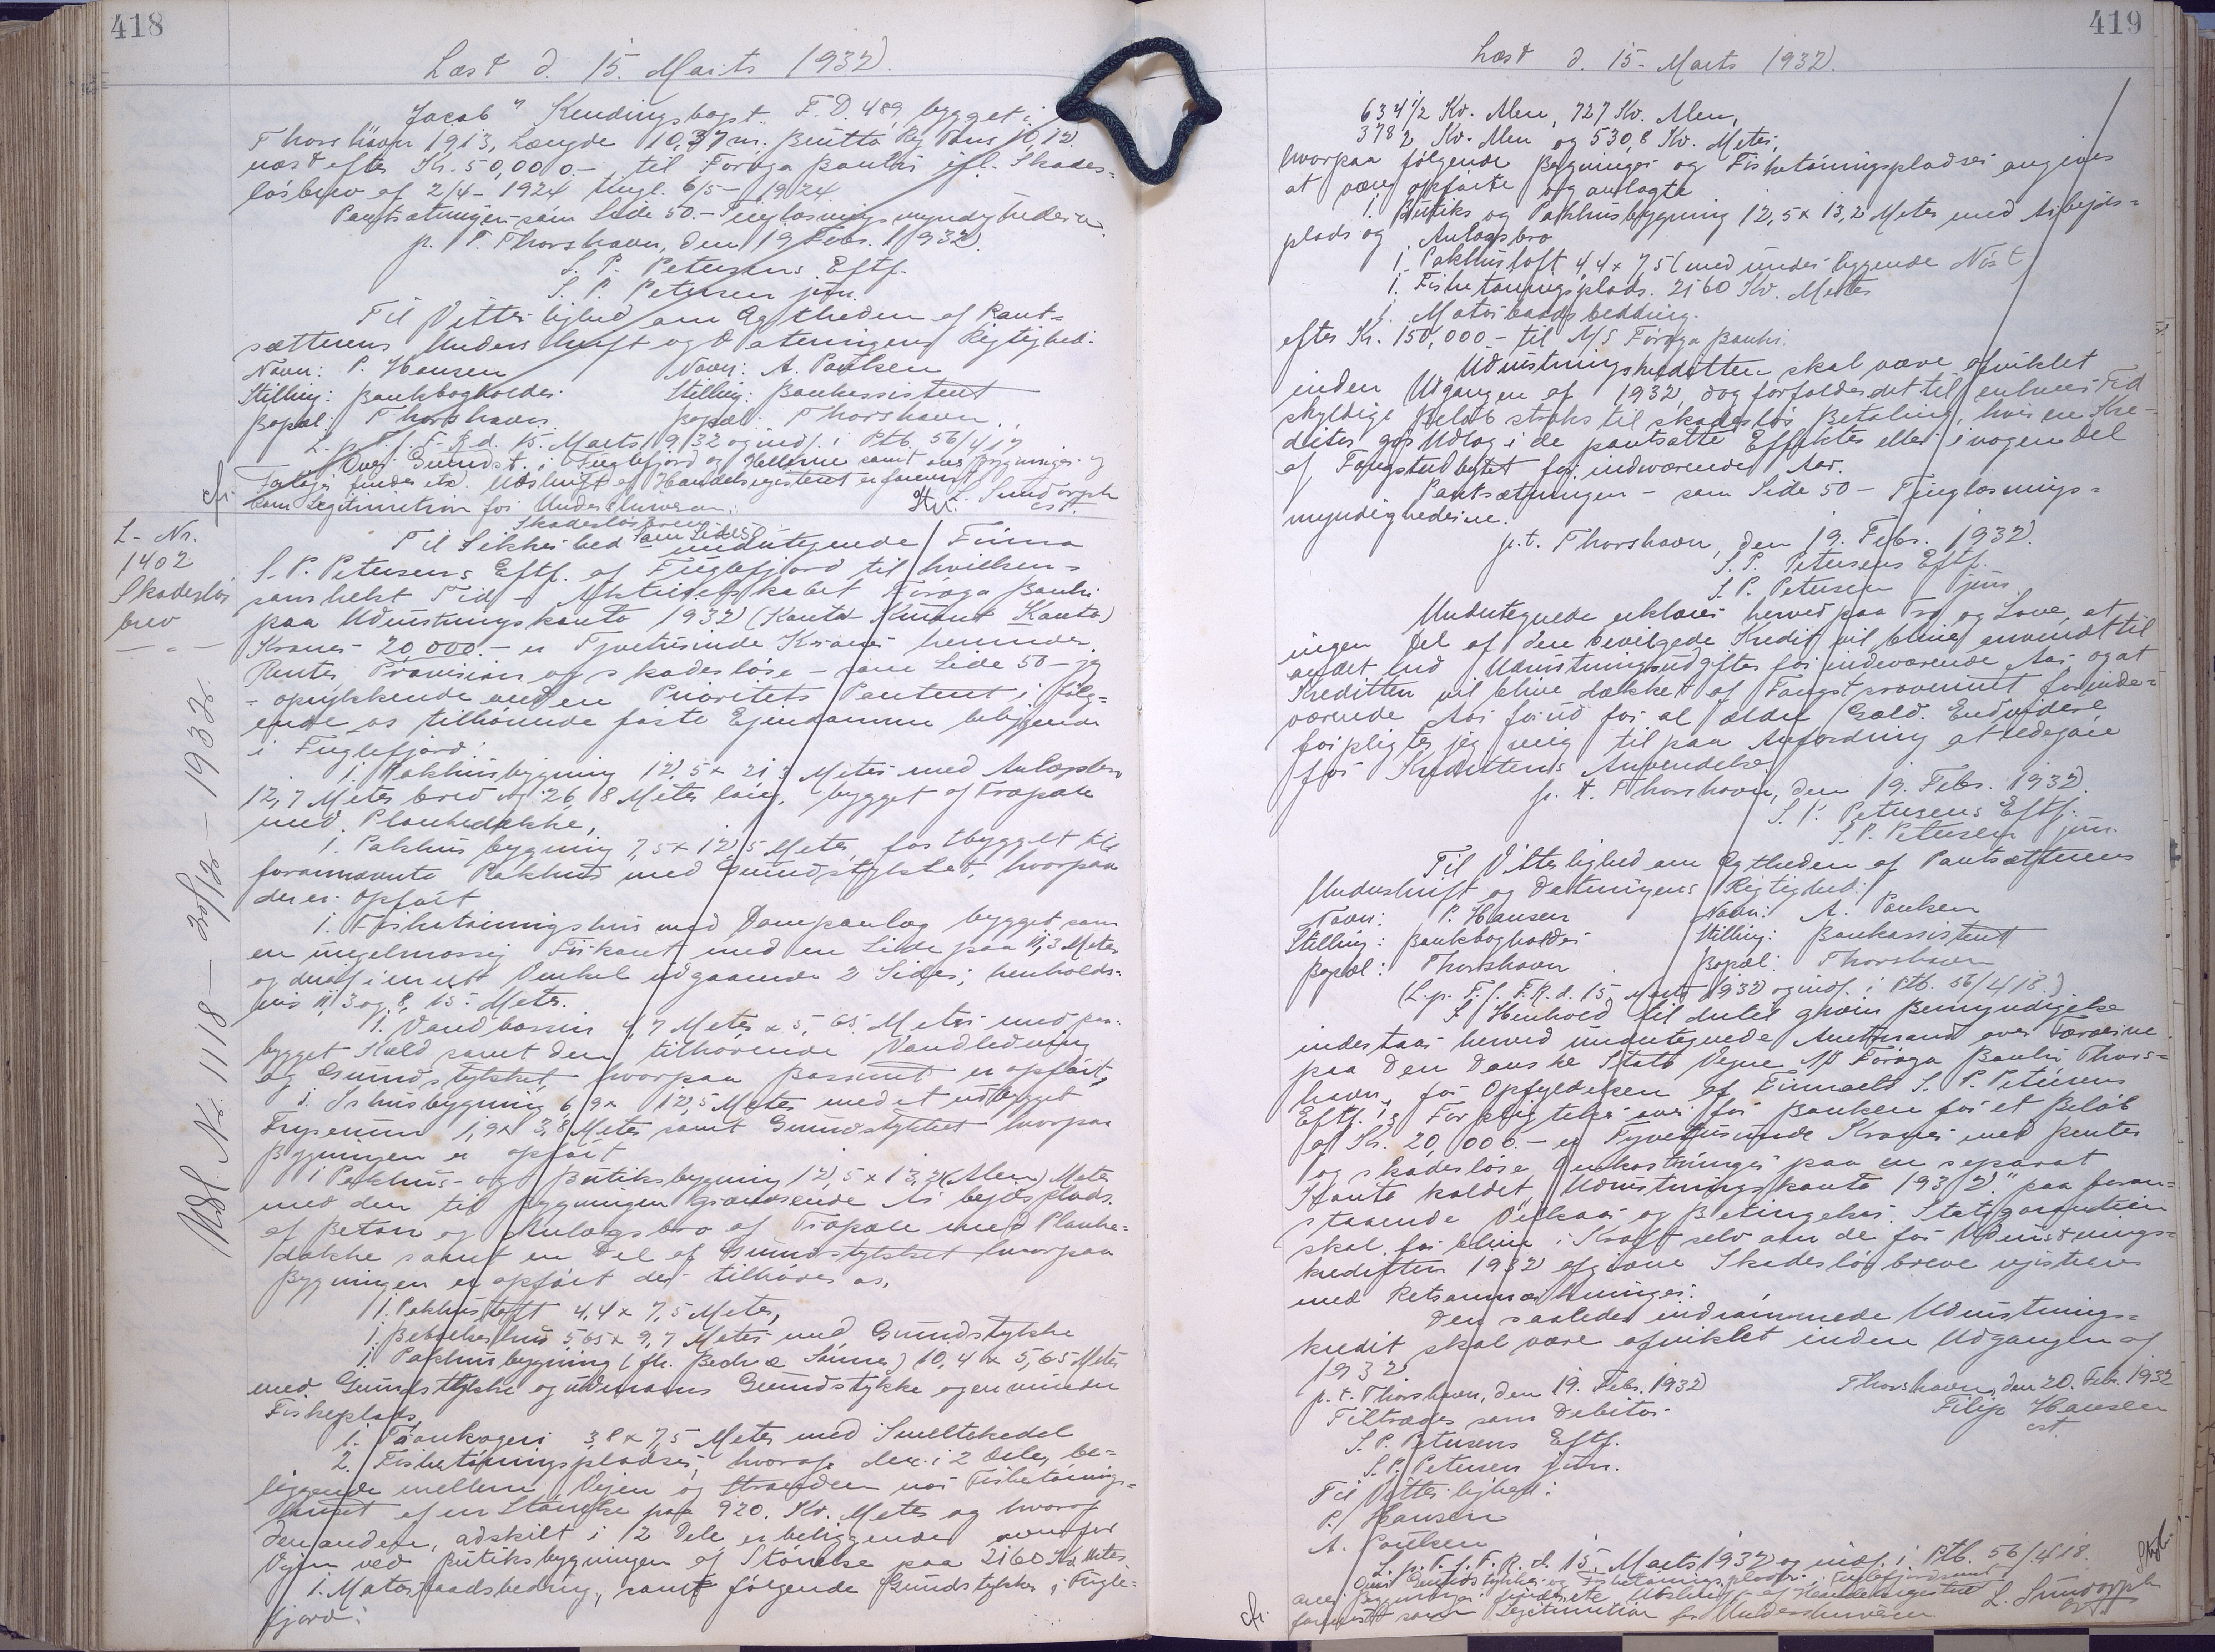 418
Læst d. 15. Marts 1932.
"Jacob" Kendingsbogst. F.D. 489, bygget i
Thorshavn 1913, Længde 10,37 m. Brutto Reg Tons 10,12.
næst efter Kr. 50,000.- til Føroya Banki efl. Skades-
løsbrev af 2/4-1924 tingl. 6/5-1924
Pantsætningen - som Side 50. - Tinglæsningsmyndighederne.
p. T. Thorshavn, den 19 Febr. 1932.
S. P. Petersens Eftf.
S. P. Petersen jun.
Til Vitterlighed om Ægtheden af Pant-
sætterens Underskrift og Dateringens Rigtighed:
Navn: P. Hansen Navn: A. Poulsen
Stilling: Bankbogholder Stilling: Bankassistent
Bopæl: Thorshavn Bopæl: Thorshavn
L. p. T. f. F. R. d. 15. Marts 1932 og indf. i Ptb. 56/417
Over Grundst. i Fuglefjord og Hellerne samt over Bygninger og
Anlæg findes etc. Udskrift af Handelsregisteret er forevist
som Legitimation for Underskriveren.
cfr. L. Sundorph
cst.
L-Nr.
1402
Skadesløs
brev
Udl. Nr. 1118 - 30/12 - 1932.
Skadesløsbrev
Til Sikkerhed - som Side 50 - undertegnede Firma
S. P. Petersens Eftf. af Fuglefjord til hvilken-
somhelst Tid - Aktieselskabet Føroya Banki
paa Udrustningskonto 1932 (Konto Kurant Konto)
Kroner 20,000.- er Tyvetusinde Kroner herunder
Renter, Provision og skadesløse - som Side 50 - jeg
- oprykkende anden Prioritets Panteret i følg-
ende os tilhørende faste Ejendomme beliggende
i Fuglefjord:
1. Pakhusbygning 12,5 x 21,3 Meter med Anlægsbro
12,7 Meter bred og 26,8 Meter lang, bygget af Træpæle
med Plankedække,
1. Pakhusbygning 7,5 x 12,5 Meter, fastbygget til
forannævnte Pakhus med Grundstykket, hvorpaa
der er opført
1. Fisketørringshus med Dampanlæg bygget som
en uregelmæssig Firkant med en Side paa 11,3 Meter
og deraf i en ret Vinkel udgaaende 2 Sider, henholds-
vis 11,3 og 8,15 Meter.
1. Vandbassin 4,7 Meter x 5,65 Meter med paa-
bygget Hald samt den tilhørende Vandledning
og Grundstykket hvorpaa Bassinet er opført,
1. Ishusbygning 6,9 x 12,5 Meter med et udbygget
Fryserum 1,9 x 3,8 Meter samt Grundstykket hvorpaa
Bygningen er opført
1 Pakhus- og Butiksbygning 12,5 x 13,2 (Alen) Meter
med den til Bygningen grænsende Arbejdsplads
af Beton og Anlægsbro af Træpæle med Planke-
dække samt en Del af Grundstykket hvorpaa
Bygningen er opført der tilhører os.
1. Pakhusloft 4,4 x 7,5 Meter,
1. Beboelseshus 5,65 x 9,7 Meter med Grundstykke
1. Pakhusbygning (fh. Bech & Sønner) 10,4 x 5,65 Meter
med Grundstykke og udenoms Grundstykke og en mindre
Fiskeplads,
1. Trankogeri 3,8 x 7,5 Meter med Smeltekedel
2. Fisketørringspladser, hvoraf den i 2 Dele, be-
liggende mellem Vejen og Stranden ved Fisketørrings-
huset af en Størrelse paa 920. Kv. Meter og hvoraf
den anden, adskilt i 2 Dele er beliggende ovenfor
Vejen ved Butiksbygningen af Størrelse paa 2160 Kv. Meter.
1. Motorbaadsbeding, samt følgende Grundstykker i Fugle-
fjord:
419
Læst d. 15. Marts 1932.
634 1/2 Kv. Alen, 727 Kv. Alen,
3782 Kv. Alen og 530,8 Kv. Meter,
hvorpaa følgende Bygninger og Fisketørringspladser angives
at være opførte og anlagte
1. Butiks og Pakhusbygning 12,5 x 13,2 Meter med Arbejds-
plads og Anlægsbro
1. Pakhusloft 4,4 x 7,5 (med underliggende Nøst)
1. Fisketørringsplads. 2160 Kv. Meter
1. Motorbaadsbedding.
efter Kr. 150,000.- til A/S Føroya Banki.
Udrustningskreditten skal være afviklet
inden Udgangen af 1932, dog forfalder det til enhver Tid
skyldige Beløb straks til skadesløs Betaling, hvis en Kre-
ditor gør Udlæg i de pantsatte Effekter eller i nogen del
af Fangstudbyttet for indeværende Aar.
Pantsætningen - som Side 50 - Tinglæsnings-
myndighederne.
p.t. Thorshavn, den 19. Febr. 1932.
S. P. Petersens Eftf.
S. P. Petersen jun.
Undertegnede erklærer herved paa Tro og Love, at
ingen Del af den bevilgede Kredit vil blive anvendt til
andet end Udrustningsudgifter for indeværende Aar, og at
Kreditten vil blive dækket af Fangstprovenuet for inde-
værende Aar forud for al ældre Gæld. Endvidere
forpligter jeg mig til paa Anfordring at redegøre
for Kredittens Anvendelse.
p. t. Thorshavn, den 19. Febr. 1932.
S. P. Petersens Eftf.
S. P. Petersen jun.
Til Vitterlighed om Ægtheden af Pantsætterens
Underskrift og Dateringens Rigtighed:
Navn: P. Hansen Navn: A. Poulsen
Stilling: Bankbogholder Stilling: Bankassistent
Bopæl: Thorshavn Bopæl: Thorshavn
(L. p. T. f. F. R. d. 15 Marts 1932 og indf. i Ptb. 56/418.)
I Henhold til dertil given Bemyndigelse
indestaar herved undertegnede Amtmand over Færøerne
paa Den Danske Stats Vegne A/S Føroya Banki Thors-
havn, for Opfyldelsen af Firmaet S. P. Petersens
Eftf.'s Forpligtelser over for Banken for et Beløb
af Kr. 20,000.- er Tyvetusinde Kroner med Renter
og skadesløse Omkostninger paa en separat
Konto kaldet "Udrustningskonto 1932" paa foran-
staaende Vilkaar og Betingelser. Statsgarantien
skal forblive i Kraft selv om de for Udrustnings-
kreditten 1932 afgivne Skadesløsbreve registreres
med Retsanmærkninger.
Den saaledes indrømmede Udrustnings-
kredit skal være afviklet inden Udgangen af
1932
p. t. Thorshavn, den 19. Febr. 1932 Thorshavn, den 20. Febr. 1932
Tiltrædes som Debitor Filip Hansen
cst.
S. P. Petersens Eftf.
S. P. Petersen jun.
Til Vitterlighed:
P. Hansen
A. Poulsen
L. p. T. f. F. R. d. 15. Marts 1932 og indf. i Ptb. 56/418.
Over Grundstykker og Fisketørringspladser i Fuglefjord samt
over Bygninger findes etc. Udskrift af Handelsregisteret
forevist som Legitimation for Underskriveren. L. Sundorph
cfr. cst.